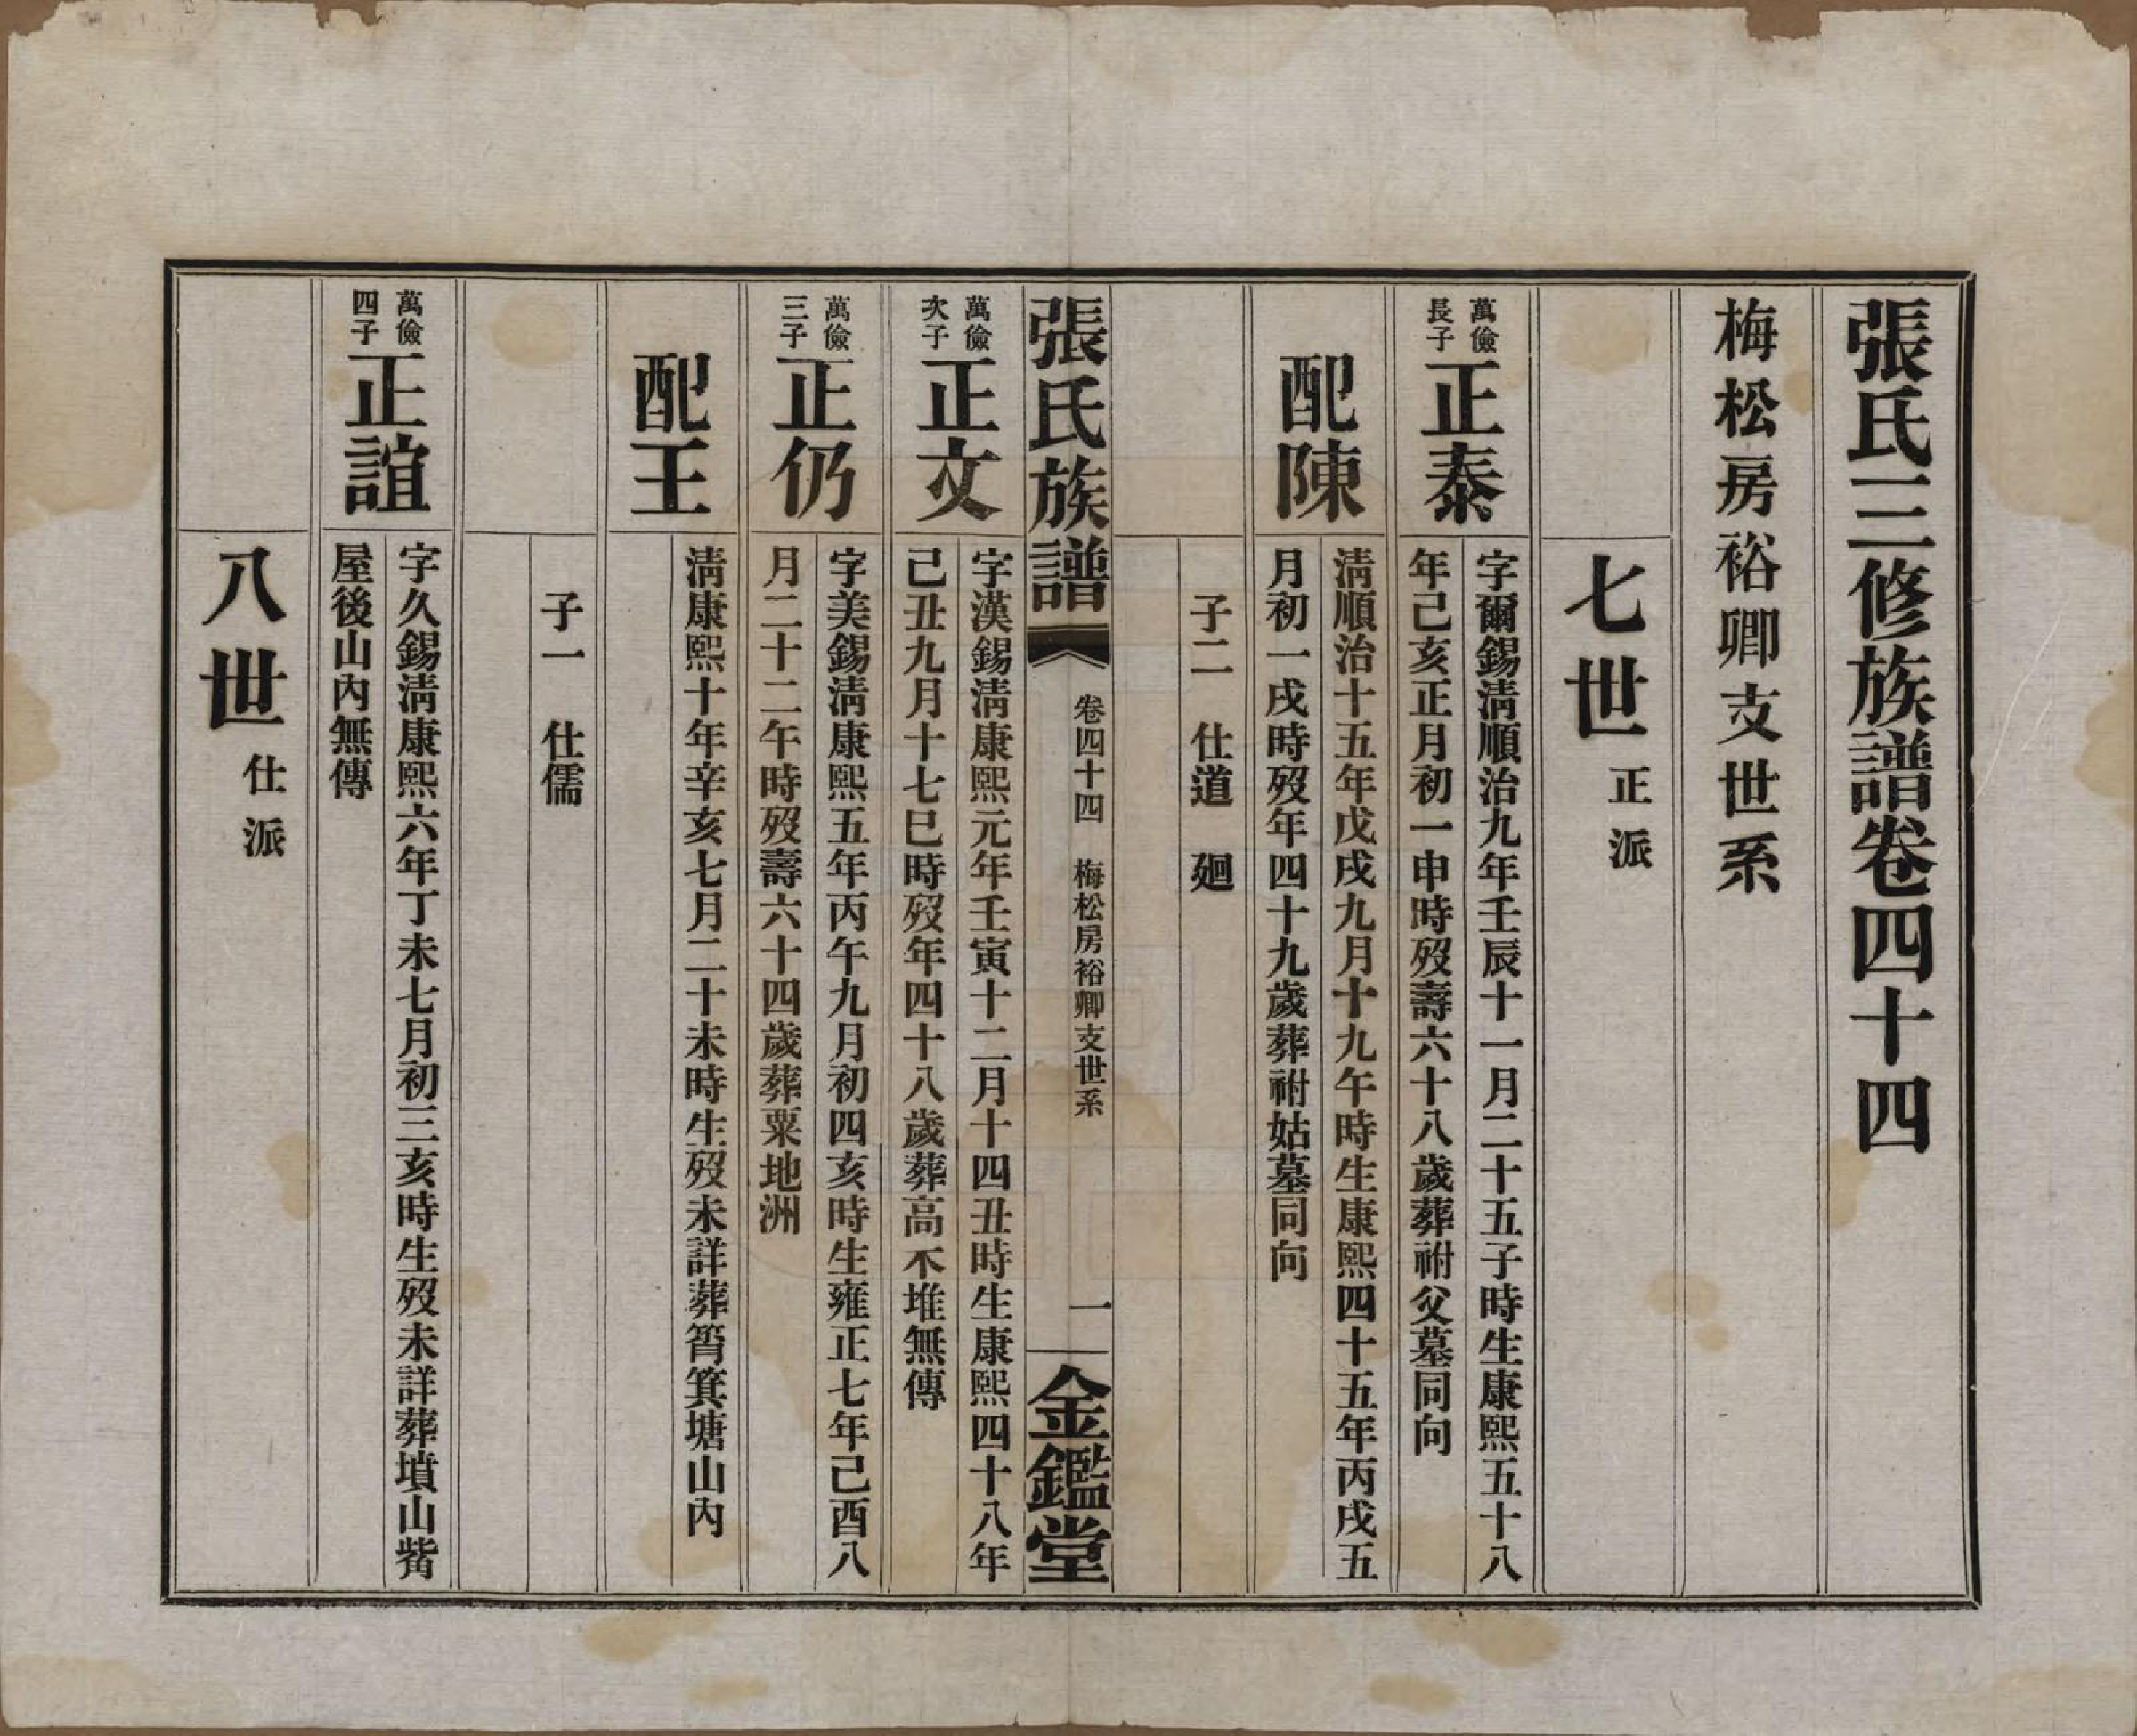 張氏三修族譜卷四十四
梅松房裕卿支世系
七世 正派
萬儉
長子
正泰
字爾錫淸順治九年壬辰十一月二十五子時生康熙五十八
年己亥正月初一申時歿壽六十八歲葬祔父墓同向
配陳
淸順治十五年戊戌九月十九午時生康熙四十五年丙戌五
月初一戌時歿年四十九歲葬祔姑墓同向
子二 仕道 廻
張氏族譜
卷四十四 梅松房裕卿支世系
一
金鑑堂
萬儉
次子
正文
字漢錫淸康熙元年壬寅十二月十四丑時生康熙四十八年
己丑九月十七巳時歿年四十八歲葬高不堆無傳
萬儉
三子
正仍
字美錫淸康熙五年丙午九月初四亥時生雍正七年己酉八
月二十二午時歿壽六十四歲葬粟地洲
配王
淸康熙十年辛亥七月二十未時生歿未詳葬筲箕塘山內
子一 仕儒
萬儉
四子
正誼
字久錫淸康熙六年丁未七月初三亥時生歿未詳葬墳山觜
屋後山內無傳
八世 仕派